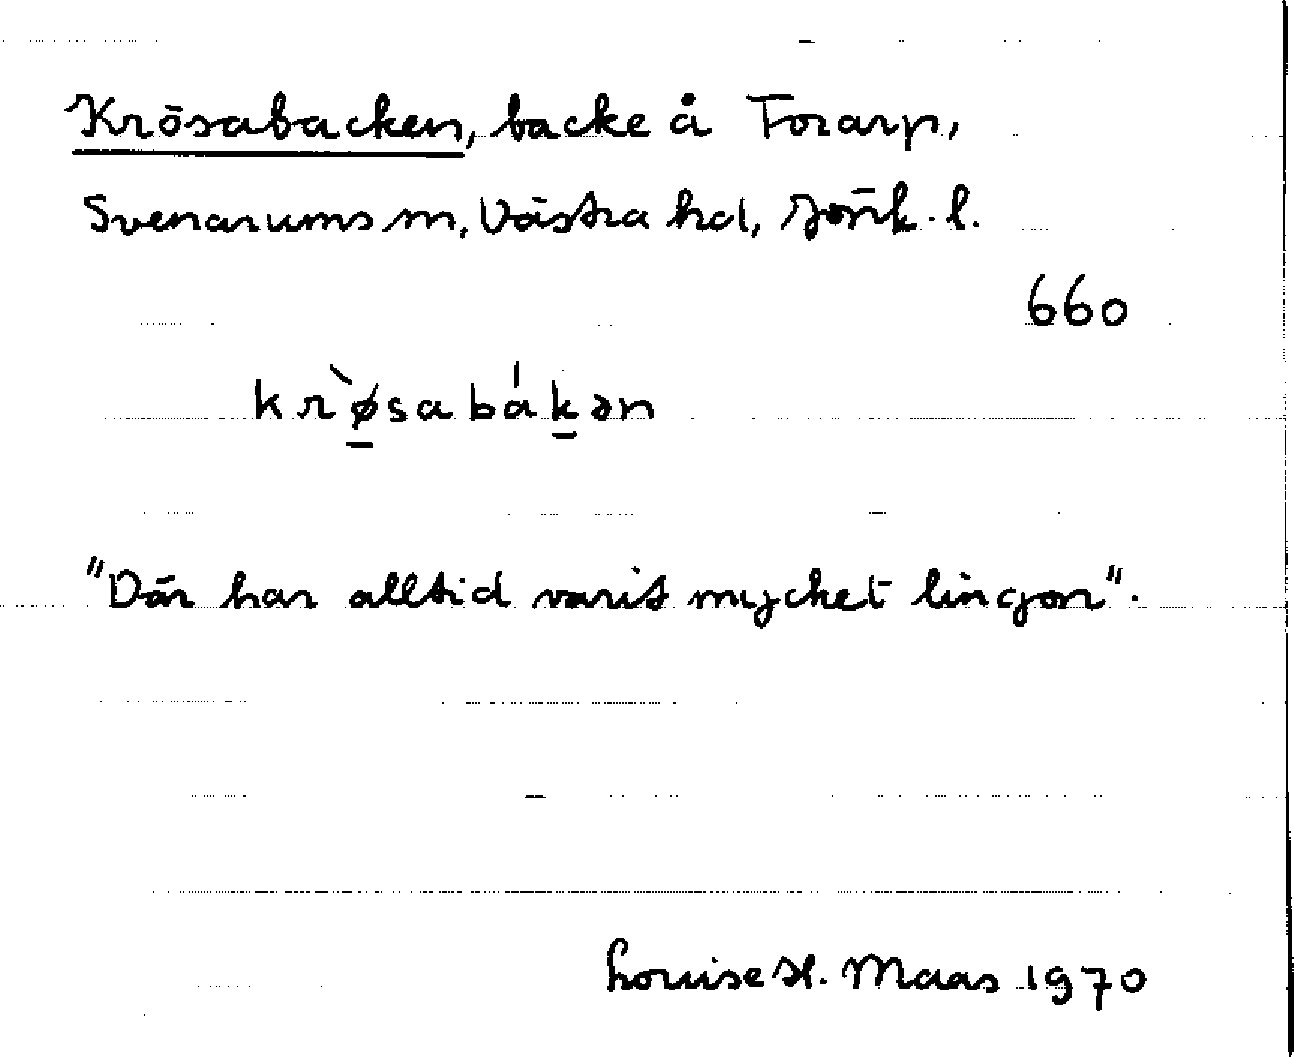 Krösabacken, backe å Forarp,
Svenarums sn, Västra hd, Jönk. l.
660
krø̀sabákən
"Där har alltid varit mycket lingon".
Louise H. Maas 1970